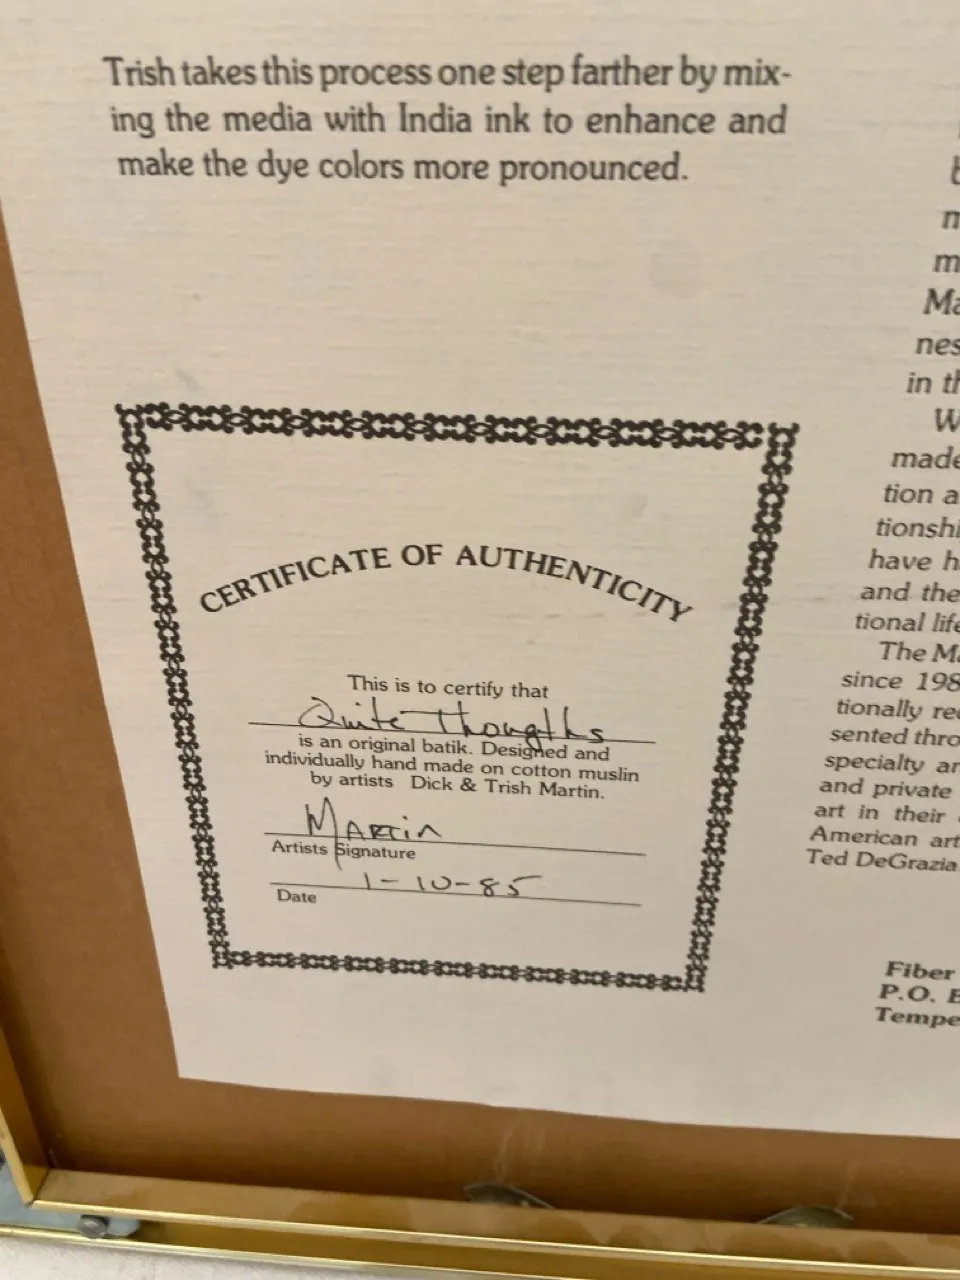 Trish takes this process one step farther by mix-
ing the media with India ink to enhance and
make the dye colors more pronounced.
CERTIFICATE OF AUTHENTICITY
This is to certify that
Quite Thougths
is an original batik. Designed and
individually hand made on cotton muslin
by artists Dick & Trish Martin.
Martin
Artists Signature
1-10-85
Date
nes
in th
W
made
tion a
tionshi
have h
and the
tional life
The Ma
since 198
tionally re
sented thro
specialty ar
and private
art in their
American art
Ted DeGrazia
Fiber
P.O. B
Tempe